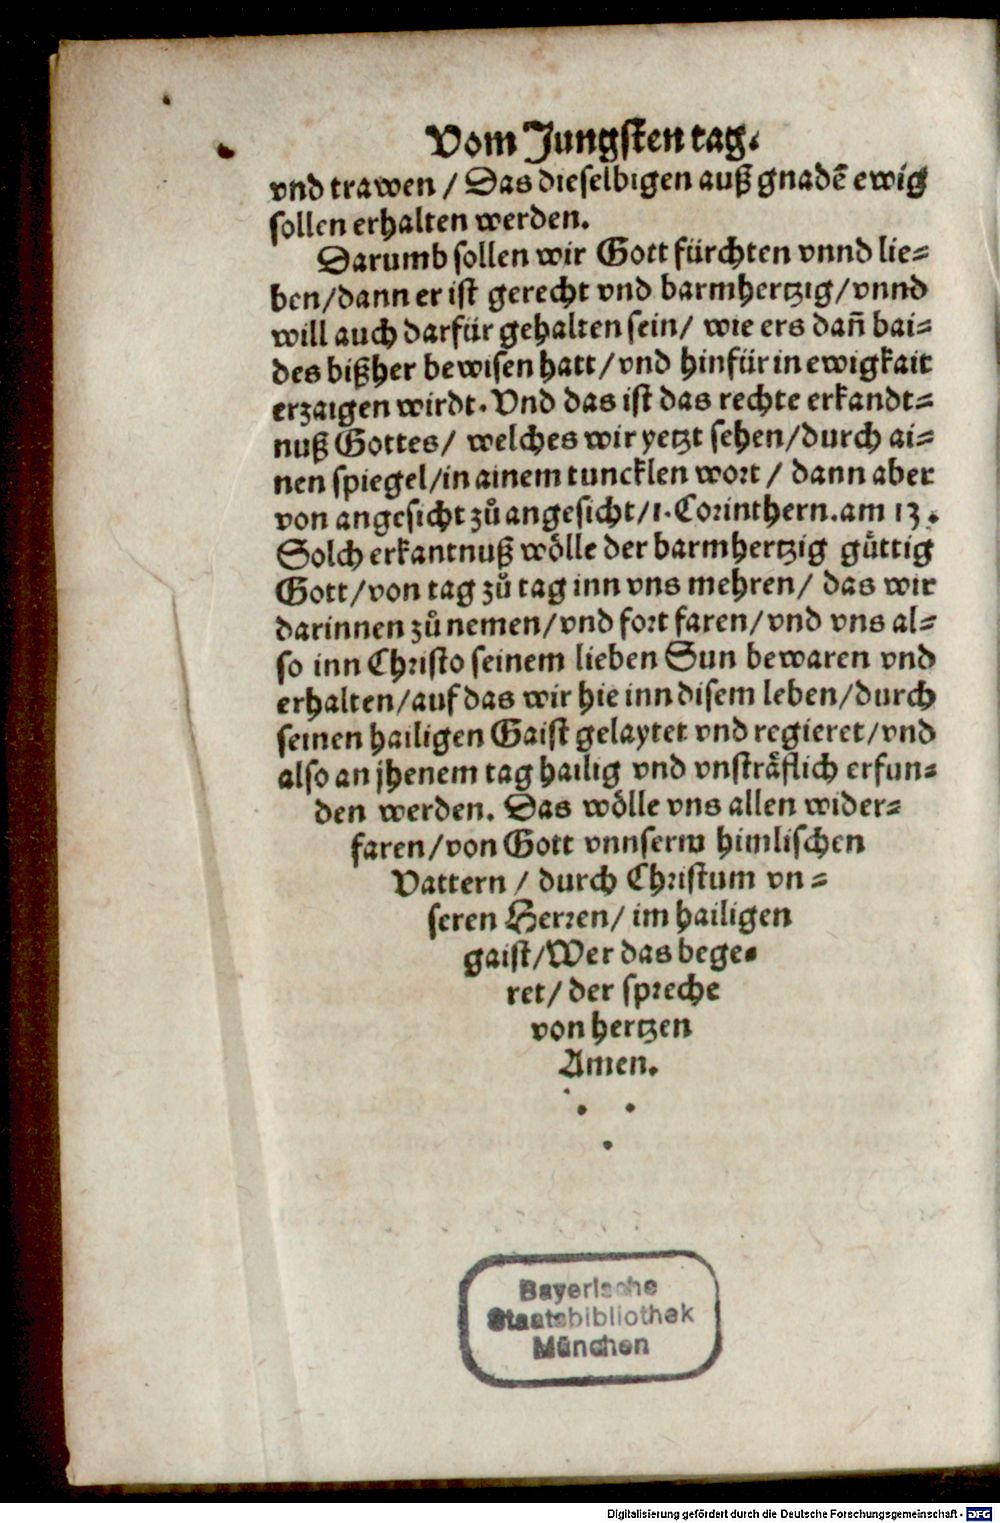 Vom Jungsten tag.
vnd trawen / Das dieselbigen auß gnadē ewig
sollen erhalten werden.
Darumb sollen wir Gott fürchten vnnd lie⸗
ben/dann er ist gerecht vnd barmhertzig/vnnd
will auch darfür gehalten sein/ wie ers dañ bai⸗
des bißher bewisen hatt/vnd hinfür in ewigkait
erzaigen wirdt. Vnd das ist das rechte erkandt⸗
nuß Gottes/ welches wir yetzt sehen/durch ai⸗
nen spiegel/in ainem tuncklen wort / dann aber
von angesicht zů angesicht/1. Corinthern.am 13.
Solch erkantnuß wölle der barmhertzig gůttig
Gott/von tag zů tag inn vns mehren/ das wir
darinnen zů nemen/vnd fort faren/vnd vns al⸗
so inn Christo seinem lieben Sun bewaren vnd
erhalten/auf das wir hie inn disem leben/durch
seinen hailigen Gaist gelaytet vnd regieret/vnd
also an jhenem tag hailig vnd vnsträflich erfun⸗
den werden. Das wölle vns allen wider⸗
faren/von Gott vnnserm himlischen
Vattern / durch Christum vn⸗
seren Herren/ im hailigen
gaist/Wer das bege⸗
ret/ der spreche
von hertzen
Amen.
Bayerische
Staatsbibliothek
München
Digitalisierung gefördert durch die Deutsche Forschungsgemeinschaft - DFG